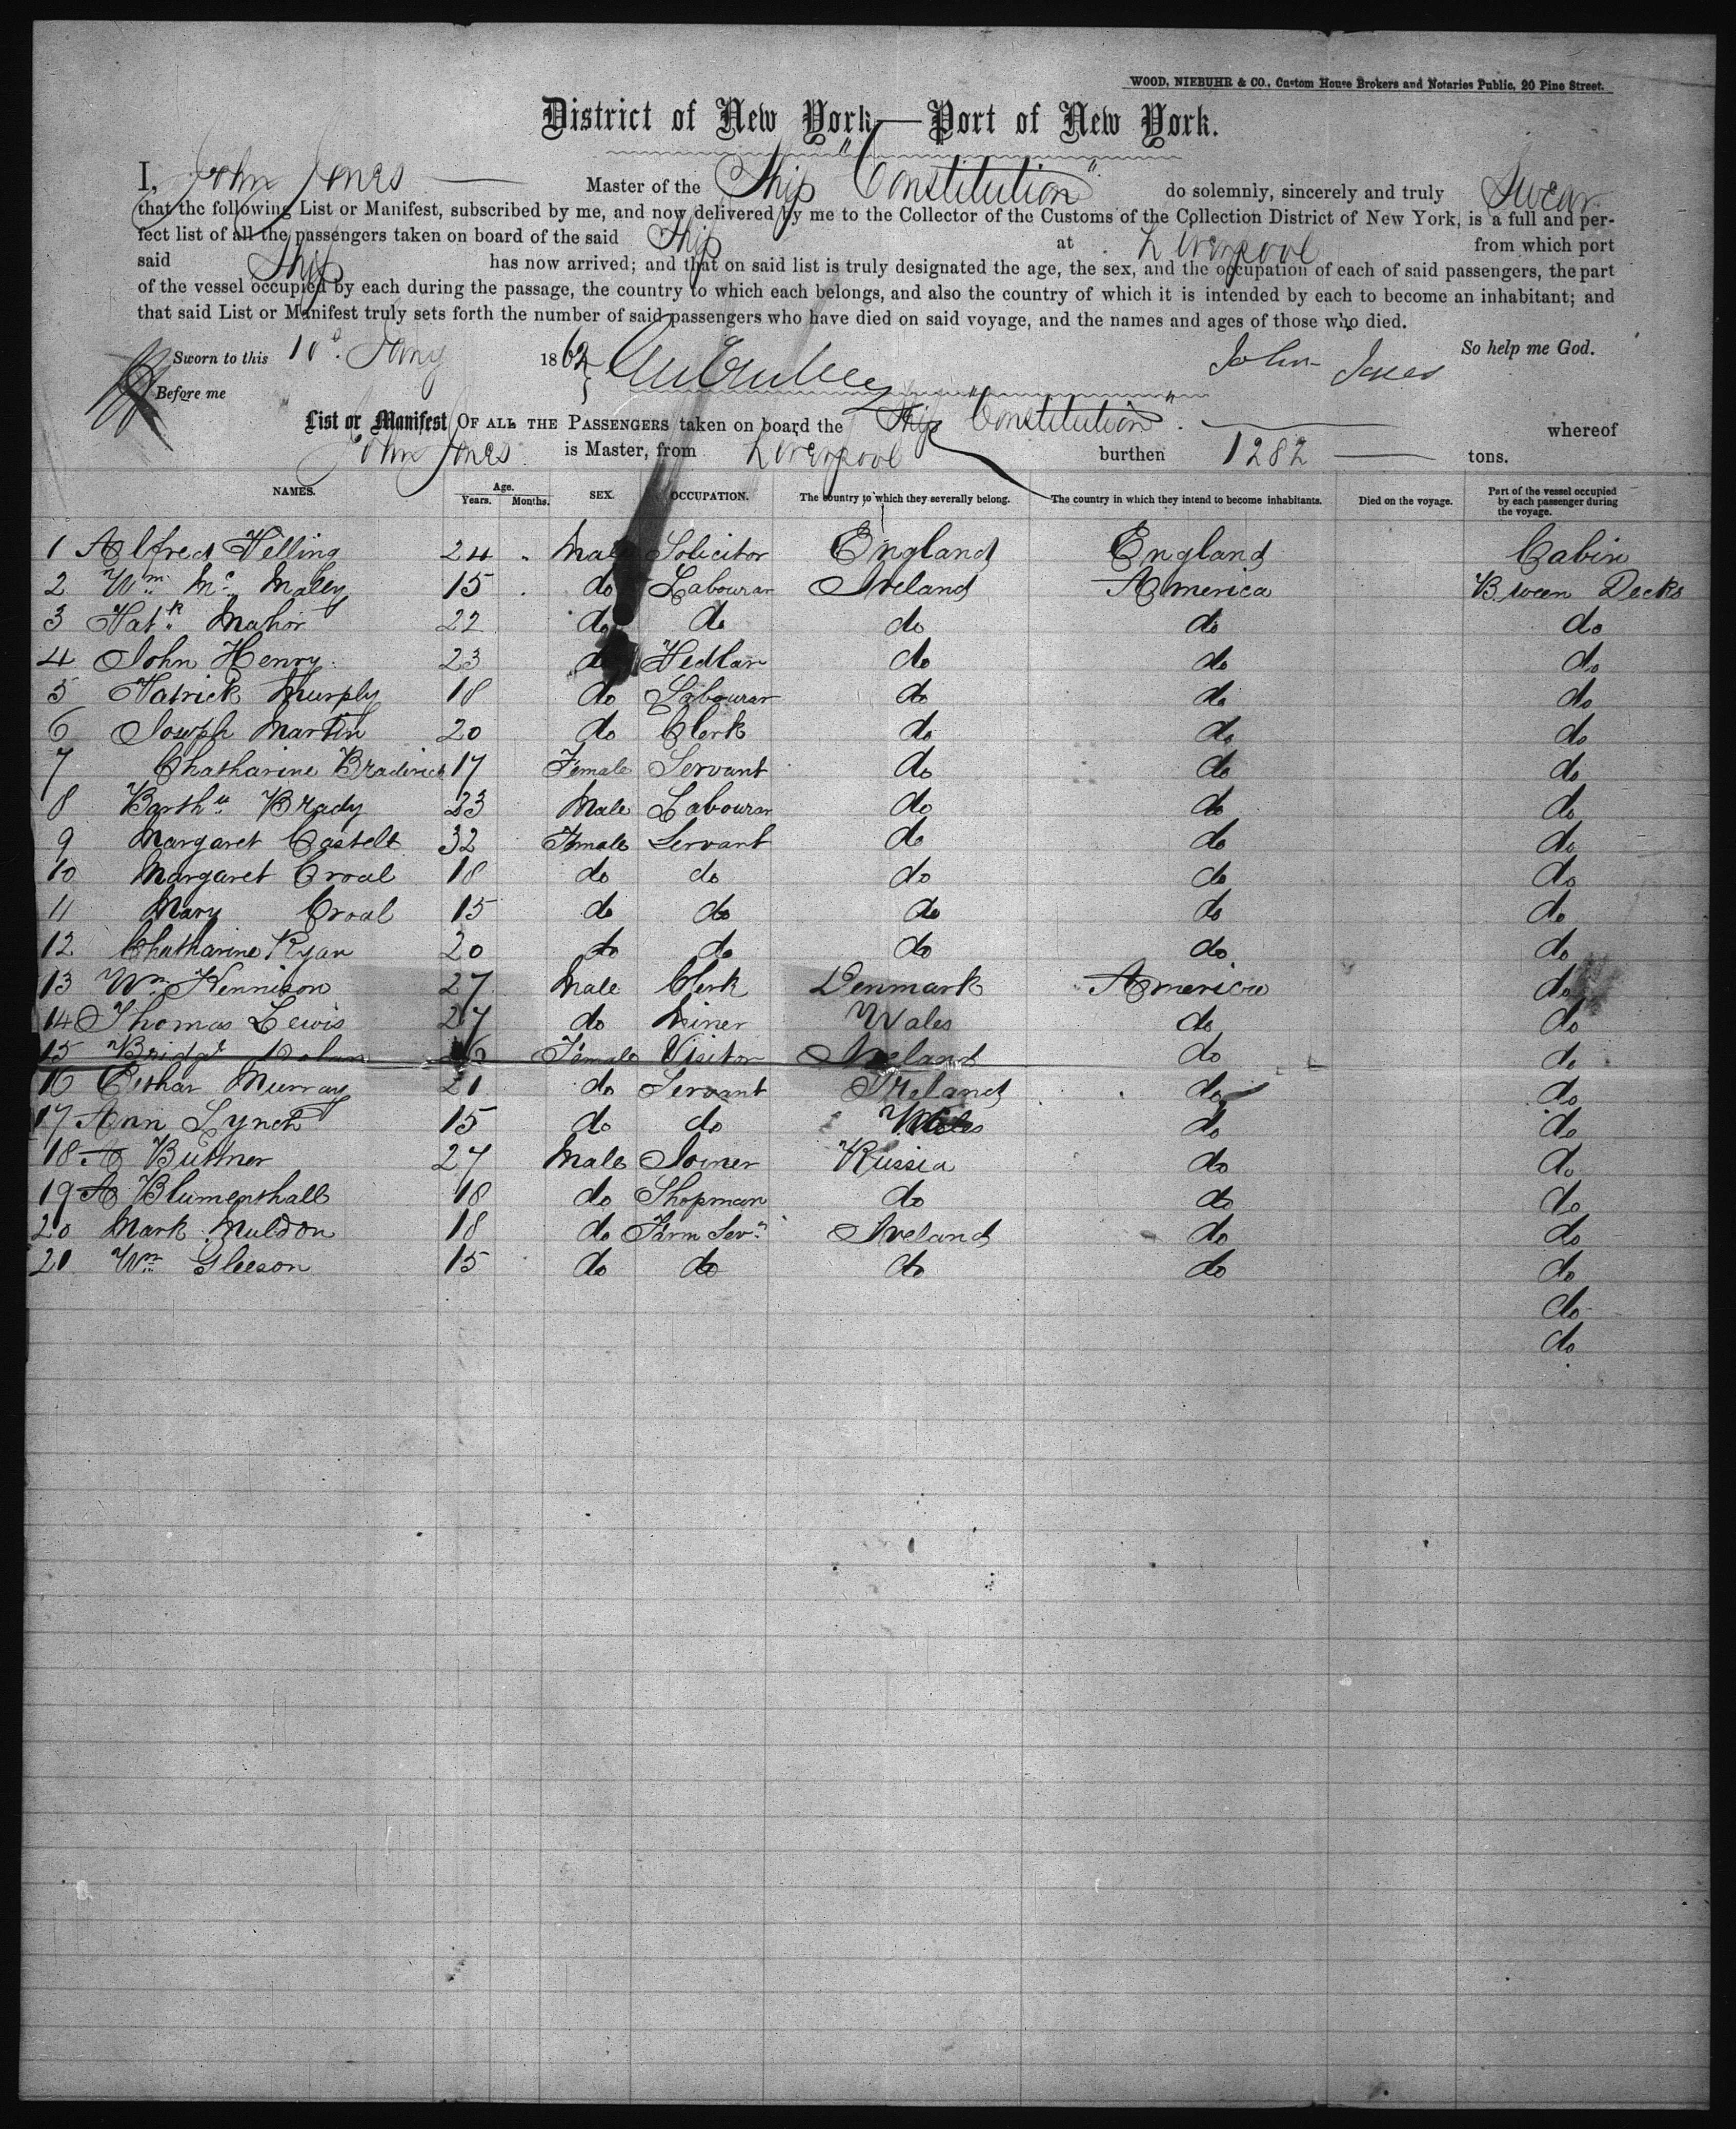 WOOD, NIEBUHR & CO., Custom House Brokers and Notaries Public, 20 Pine Street.
District of New York—Port of New York.
I, John Jones Master of the Ship "Constitution" do solemnly, sincerely and truly Swear
that the following List or Manifest, subscribed by me, and now delivered by me to the Collector of the Customs of the Collection District of New York, is a full and per-
fect list of all the passengers taken on board of the said Ship at Liverpool from which port
said Ship has now arrived; and that on said list is truly designated the age, the sex, and the occupation of each of said passengers, the part
of the vessel occupied by each during the passage, the country to which each belongs, and also the country of which it is intended by each to become an inhabitant; and
that said List or Manifest truly sets forth the number of said passengers who have died on said voyage, and the names and ages of those who died.
Sworn to this 10 Jany 1862 John Jones So help me God.
Before me
List or Manifest OF ALL THE PASSENGERS taken on board the Ship "Constitution" whereof
John Jones is Master, from Liverpool burthen 1282 tons.
NAMES. Age. Years. Months. SEX. OCCUPATION. The country to which they severally belong. The country in which they intend to become inhabitants. Died on the voyage. Part of the vessel occupied by each passenger during the voyage.
1 Alfred Helling 24 Male Solicitor England England Cabin
2 Wm Mc Maley 15 do Labourar Ireland America B. ween Decks
3 Patk Mahor 22 do do do do do
4 John Henry 23 do Pedlar do do do
5 Patrick Murphy 18 do Labourar do do do
6 Joseph Martin 20 do Clerk do do do
7 Chatharine Braderick 17 Female Servant do do do
8 Barthw Brady 23 Male Labourar do do do
9 Margaret Castell 32 Female Servant do do do
10 Margaret Croal 18 do do do do do
11 Mary Croal 15 do do do do do
12 Chatharine Ryan 20 do do do do do
13 Wm Kennison 27 Male Clerk Denmark America do
14 Thomas Lewis 27 do Miner Wales do do
15 Bridgt Dolan 26 Female Visitor Ireland do do
16 Esthar Murray 21 do Servant Ireland do do
17 Ann Lynch 15 do do Wales do do
18 A Buttner 27 Male Joiner Russia do do
19 A Blumenthall 18 do Shopman do do do
20 Mark Muldon 18 do Farm Servt Ireland do do
21 Wm Gleeson 15 do do do do do
do
do